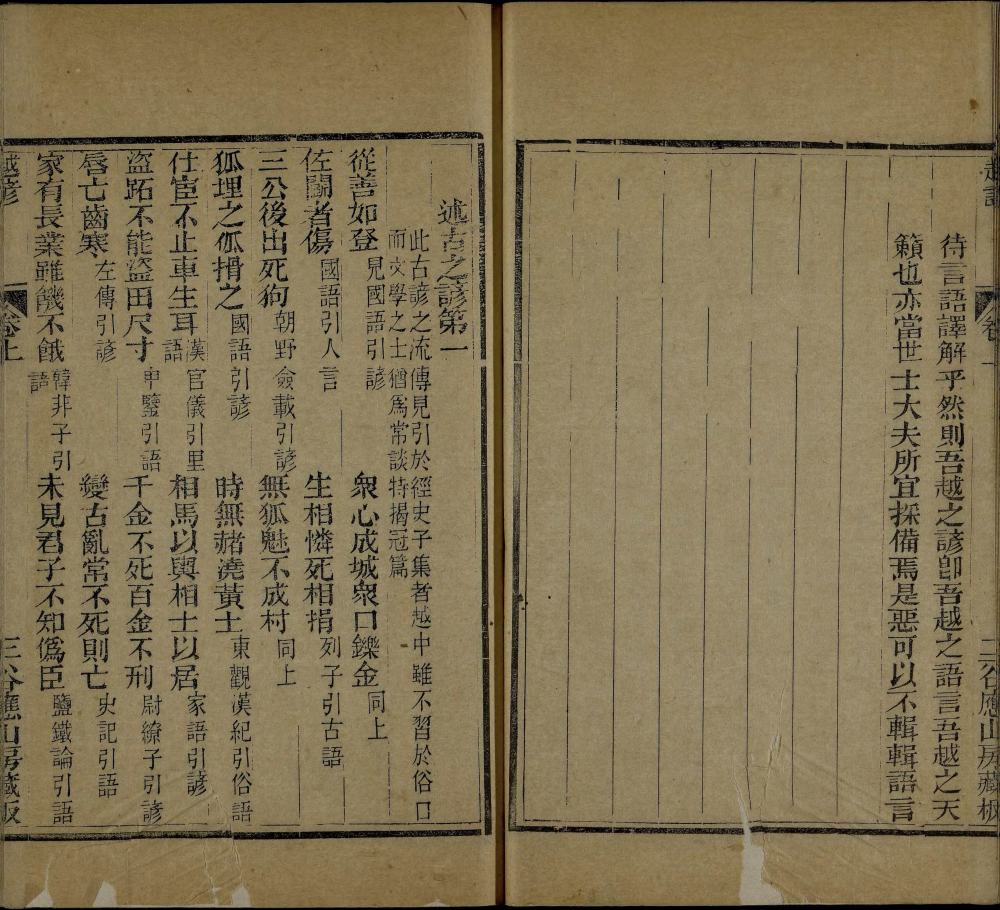 越諺
卷上
二谷應山房藏板
待言語譯解乎然則吾越之諺卽吾越之語言吾越之天
籟也亦當世士大夫所宜採備焉是惡可以不輯輯語言
述古之諺第一
此古諺之流傳見引於經史子集者越中雖不習於俗口
而文學之士猶爲常談特揭冠篇
從善如登 見國語引諺 衆心成城衆口鑠金 同上
佐鬭者傷 國語引人言 生相憐死相捐 列子引古語
三公後出死狗 朝野僉載引諺 無狐魅不成村 同上
狐埋之狐搰之 國語引諺 時無赭澆黃土 東觀漢紀引俗語
仕宦不止車生耳 漢官儀引里語 相馬以輿相士以居 家語引諺
盜跖不能盜田尺寸 申鑒引語 千金不死百金不刑 尉繚子引諺
唇亡齒寒 左傳引諺 變古亂常不死則亡 史記引語
家有長業雖饑不餓 韓非子引語 未見君子不知僞臣 鹽鐵論引語
越諺
卷上
二谷應山房藏板